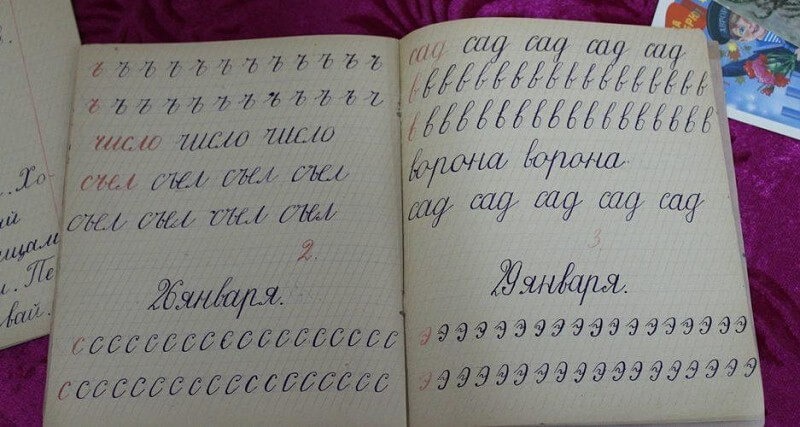 Хо-
ицам
Пе
вай.
ъ ъ ъ ъ ъ ъ ъ ъ ъ ъ ъ ъ
ъ ъ ъ ъ ъ ъ ъ ъ ъ ъ ъ ъ
число число число
съел съел съел съел
съел съел съел съел
2.
26 января.
с с с с с с с с с с с с с с с с с с
с с с с с с с с с с с с с с с с с с
сад сад сад сад сад
в в в в в в в в в в в в в в в в в
в в в в в в в в в в в в в в в в в
ворона ворона
сад сад сад сад сад
3.
29 января.
э э э э э э э э э э э э э э э э э э
э э э э э э э э э э э э э э э э э э